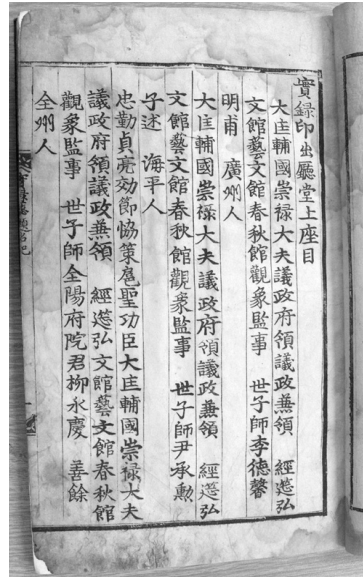 實錄印出廳堂上座目
大匡輔國崇祿大夫議政府領議政兼領 經筵弘
文館藝文館春秋館觀象監事 世子師李德馨
明甫 廣州人
大匡輔國崇祿大夫議政府領議政兼領 經筵弘
文館藝文館春秋館觀象監事 世子師尹承勳
子述 海平人
忠勤貞亮効節協策扈聖功臣大匡輔國崇祿大夫
議政府領議政兼領 經筵弘文館藝文館春秋館
觀象監事 世子師全陽府院君柳永慶 善餘
全州人